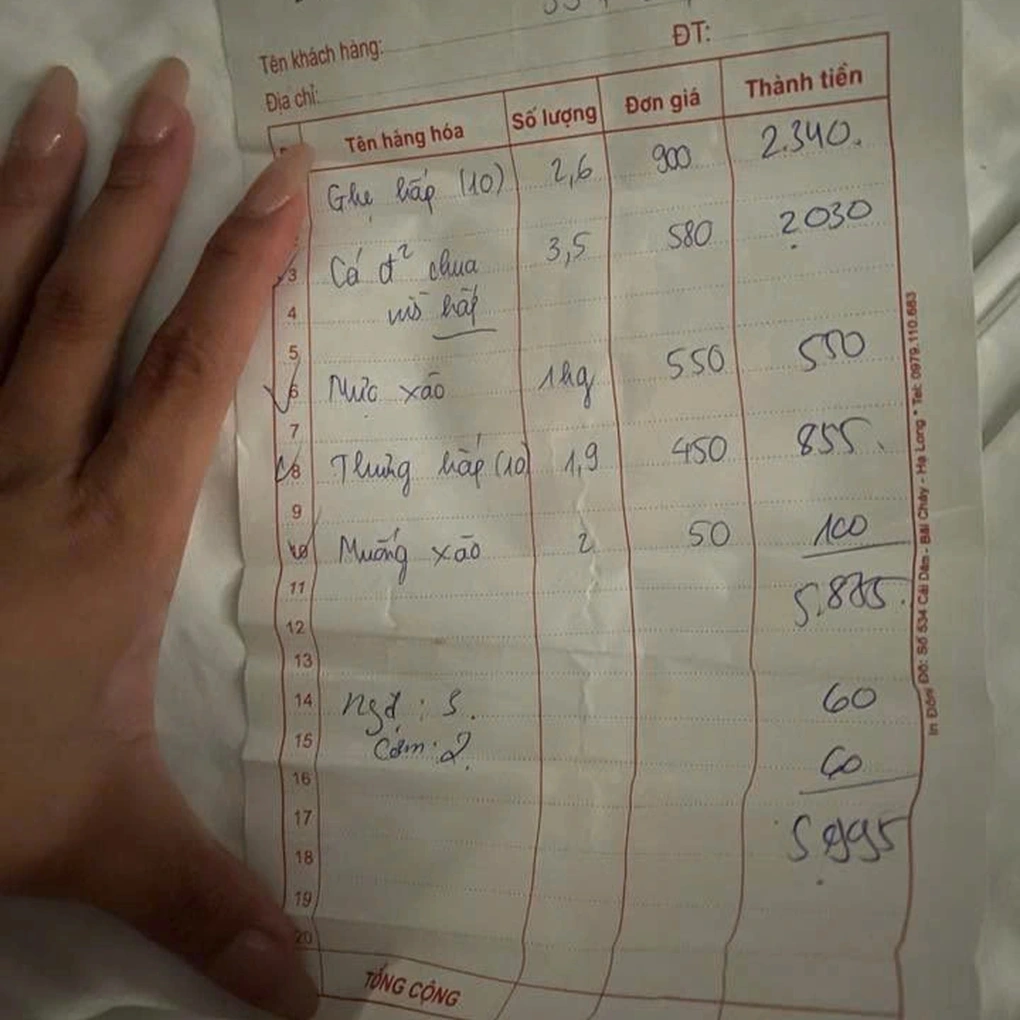 Tên khách hàng:
ĐT:
Địa chỉ:
Tên hàng hóa Số lượng Đơn giá Thành tiền
Ghẹ hấp (10) 2,6 900 2.340.
3 Cá đ² chua 3,5 580 2.030
4 hấp
5
6 Mực xào 1kg 550 550
7
8 hấp (10) 1,9 450 855.
9
10 Muống xào 2 50 100
11 5.875.
12
13
14 Ngđ : 3. 60
15 Cơm : 2. 60
16
17 5.995
18
19
20
TỔNG CỘNG
In Đông Đô: Số 534 Cái Dăm - Bãi Cháy - Hạ Long * Tel: 0979.110.683